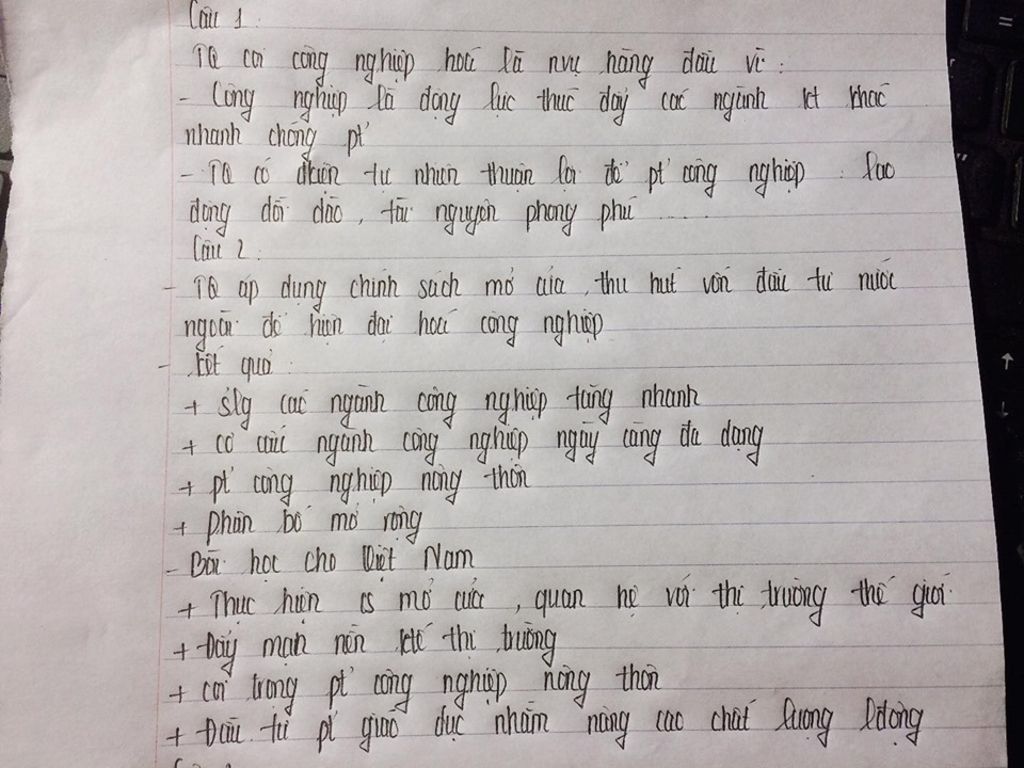 Câu 1:
TQ coi công nghiệp hoá là nvụ hàng đầu vì:
- Công nghiệp là động lực thúc đẩy các ngành kt khác
nhanh chóng pt'
- TQ có đkiện tự nhiên thuận lợi để pt' công nghiệp: lao
động dồi dào, tài nguyên phong phú .....
Câu 2:
- TQ áp dụng chính sách mở cửa, thu hút vốn đầu tư nước
ngoài để hiện đại hoá công nghiệp
- Kết quả:
+ slg các ngành công nghiệp tăng nhanh
+ cơ cấu ngành công nghiệp ngày càng đa dạng
+ pt' công nghiệp nông thôn
+ phân bố mở rộng
- Bài học cho Việt Nam
+ Thực hiện cs mở cửa, quan hệ với thị trường thế giới
+ Đẩy mạnh nền ktế thị trường
+ coi trọng pt' công nghiệp nông thôn
+ Đầu tư pt' giáo dục nhằm nâng cao chất lượng lđộng